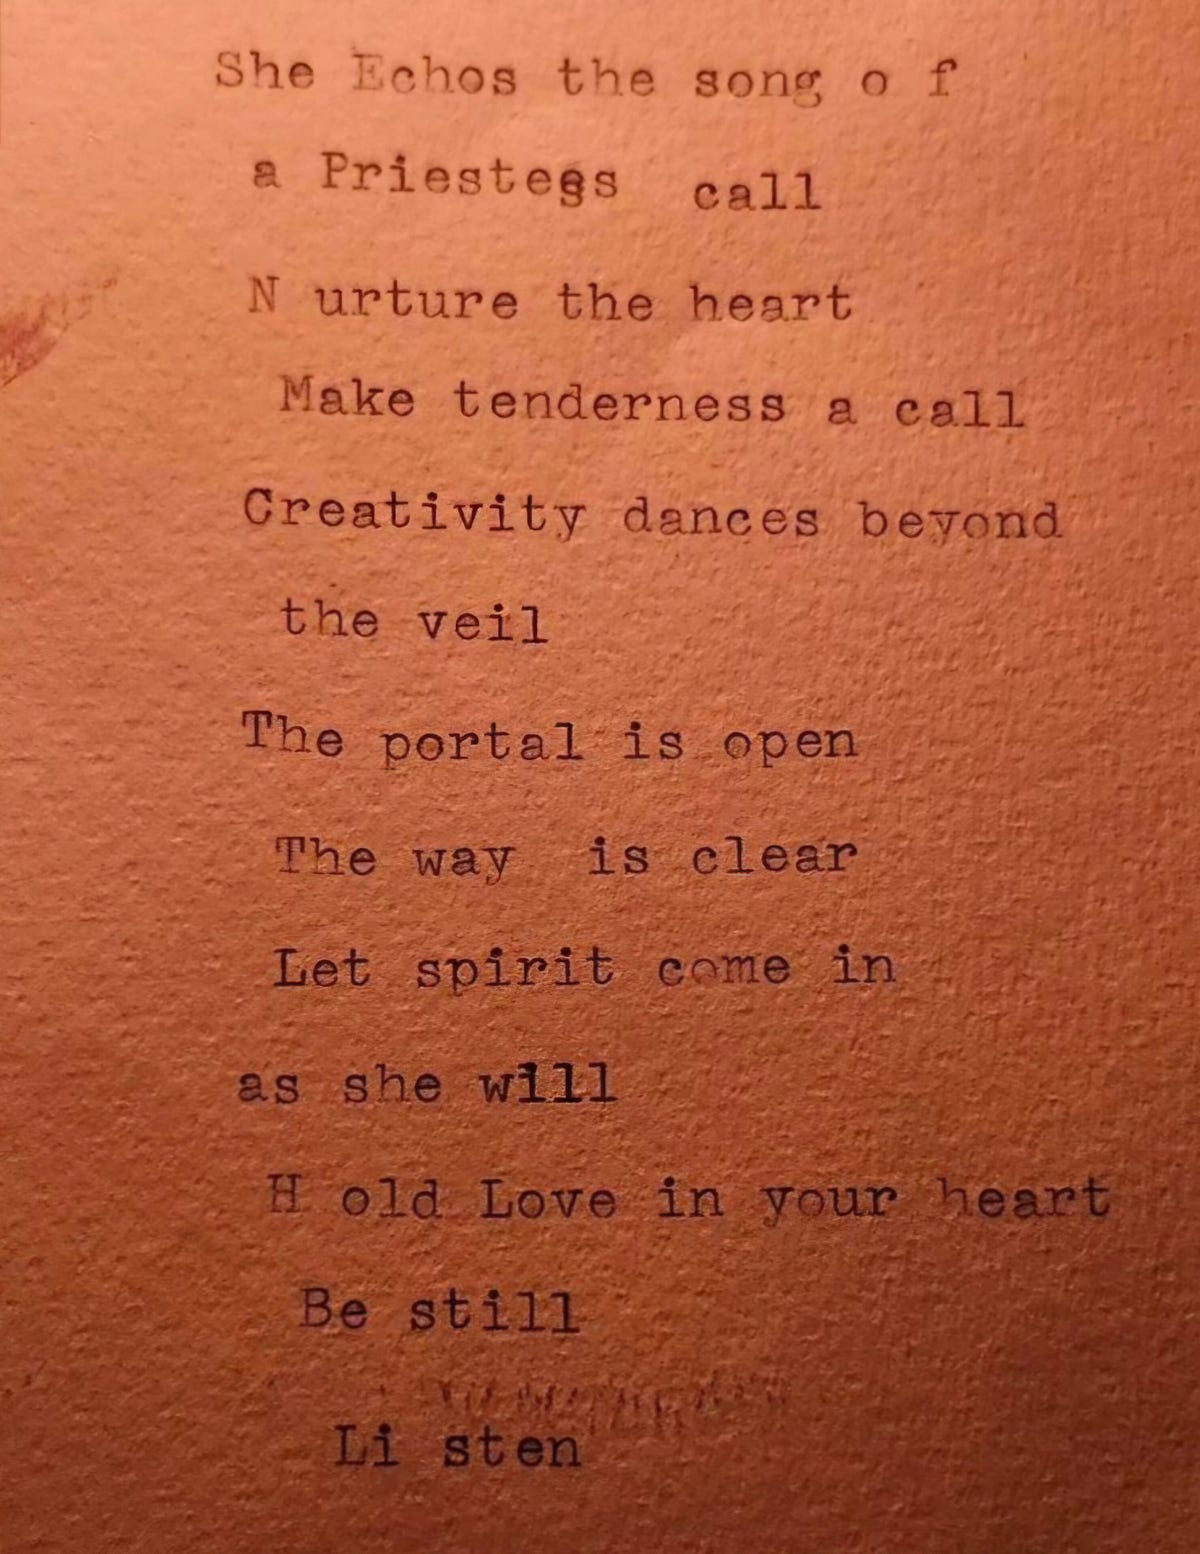 She Echos the song o f
a Priestess call
N urture the heart
Make tenderness a call
Creativity dances beyond
the veil
The portal is open
The way is clear
Let spirit come in
as she will
H old Love in your heart
Be still
Li sten